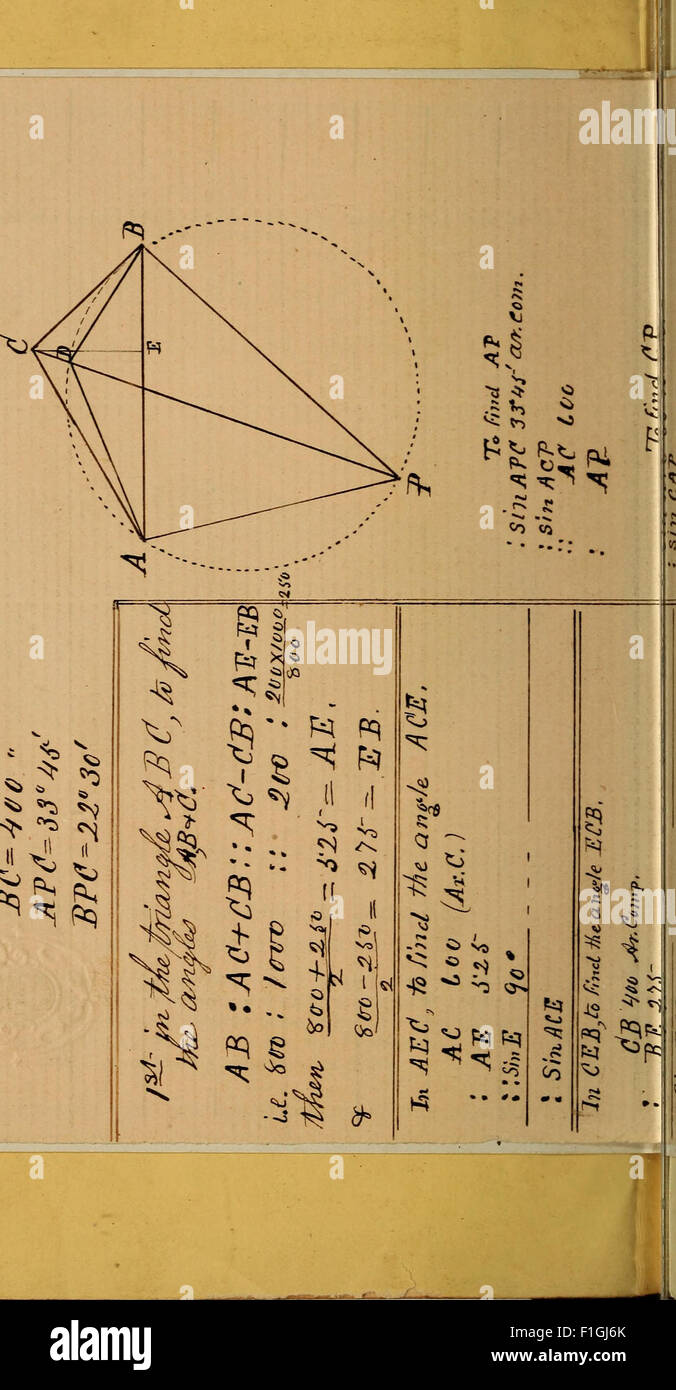 BC = 400 "
APC = 33° 45'
BPC = 22° 30'
1st in the triangle ABC, to find
the angles A,B & C.
AB : AC+CB :: AC-CB : AE-EB
i.e. 800 : 1000 :: 200 : 200×1000/800 = 250
then 800+250/2 = 525 = AE.
& 800-250/2 = 275 = EB.
In AEC, to find the angle ACE.
AC 600 (Ar.C.)
: AE 525
:: Sin E 90°
: Sin ACE
In CEB, to find the angle ECB.
CB 400 Ar. Comp.
: BE 275
C
D
B
E
A
P
To find AP
: Sin APC 33°45' ar. com.
: sin ACP
:: AC 600
: AP
To find CP
: sin CAP
a
alamy stock photo
F1GJ6K
www.alamy.com